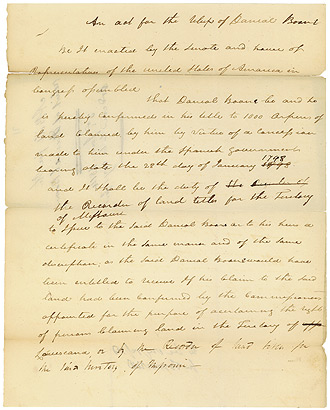 An act for the relief of Danial Boone
Be It enacted by the Senate and house of
Representation of the United States of America in
Congress assembled
that Danial Boone be and he
is hereby confirmed in his title to 1000 Arpens of
land Claimed by him by Virtue of a Concession
made to him under the Spanish Government
bearing date the 28th day of January 1798
and It shall be the duty of
the Recorder of land titles for the Territory
of Missouri
to Issue to the said Danial Boone or to his heirs a
Certificate in the same manner and of the same
discription as the said Danial Boone would have
been entitled to receive If his Claim to the said
land had been Confirmed by the Commissioners
appointed for the purpose of ascertaining the right
of persons Claiming land in the Territory of
Louisiana or by the Recorder of land titles for
the said Territory of Missouri